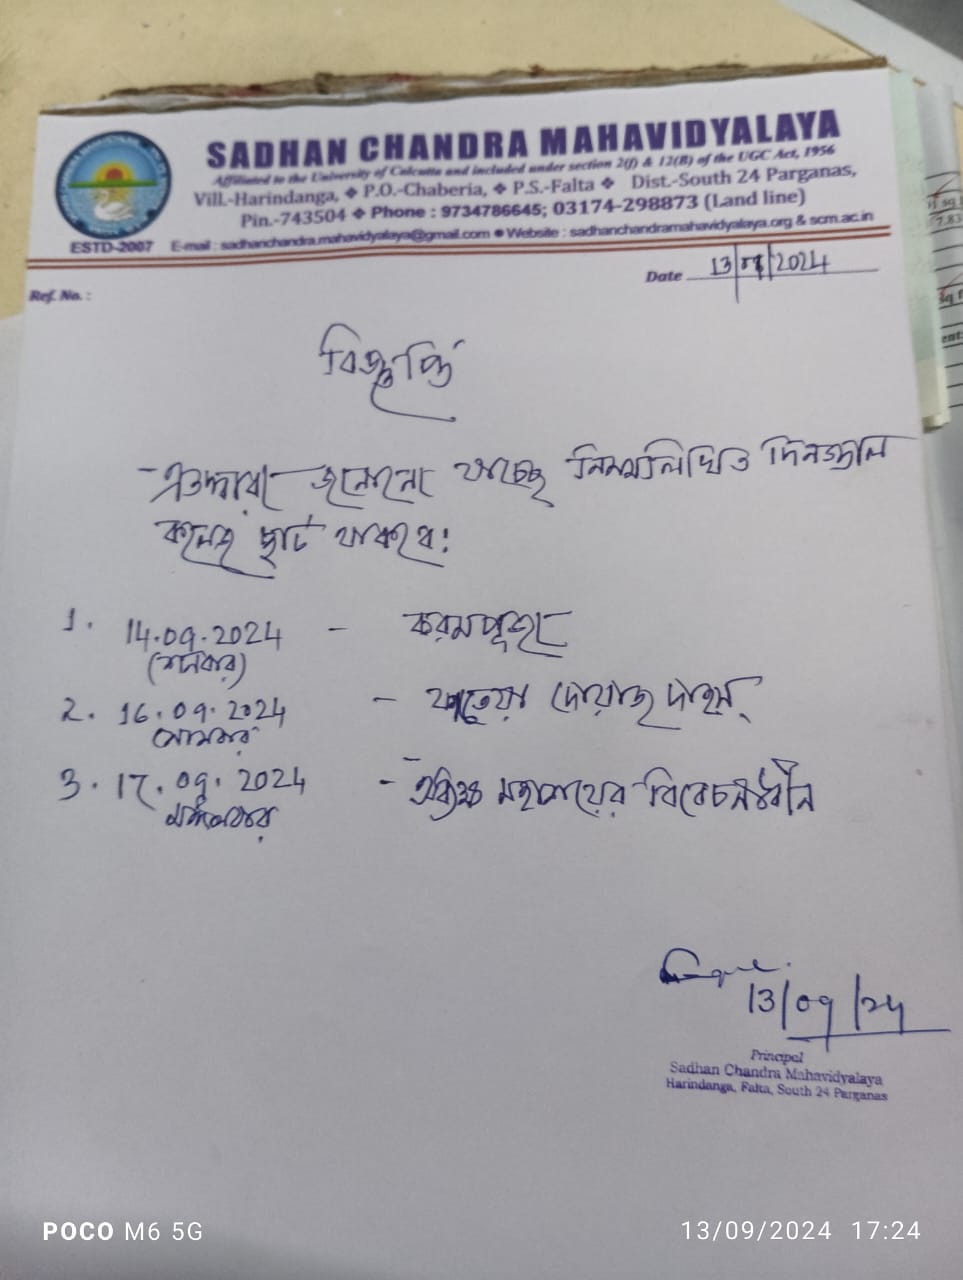 SADHAN CHANDRA MAHAVIDYALAYA
Affiliated to the University of Calcutta and included under section 2(f) & 12(B) of the UGC Act, 1956
Vill.-Harindanga, ❖ P.O.-Chaberia, ❖ P.S.-Falta ❖ Dist.-South 24 Parganas,
Pin.-743504 ❖ Phone : 9734786645; 03174-298873 (Land line)
ESTD-2007 E-mail : sadhanchandra.mahavidyalaya@gmail.com ● Website : sadhanchandramahavidyalaya.org & scm.ac.in
Date 13/09/2024
Ref. No. :
বিজ্ঞপ্তি
এতদ্দ্বারা জানানো যাচ্ছে নিম্নলিখিত দিনগুলি
কলেজ ছুটি থাকবে।
1. 14.09.2024 - করমপূজা
(শনিবার)
2. 16.09.2024 - ফাতেয়া দোয়াজ দাহম্
সোমবার
3. 17.09.2024 - অধ্যক্ষ মহাশয়ের বিবেচনাধীন
মঙ্গলবার
13/09/24
Principal
Sadhan Chandra Mahavidyalaya
Harindanga, Falta, South 24 Parganas
POCO M6 5G
13/09/2024 17:24